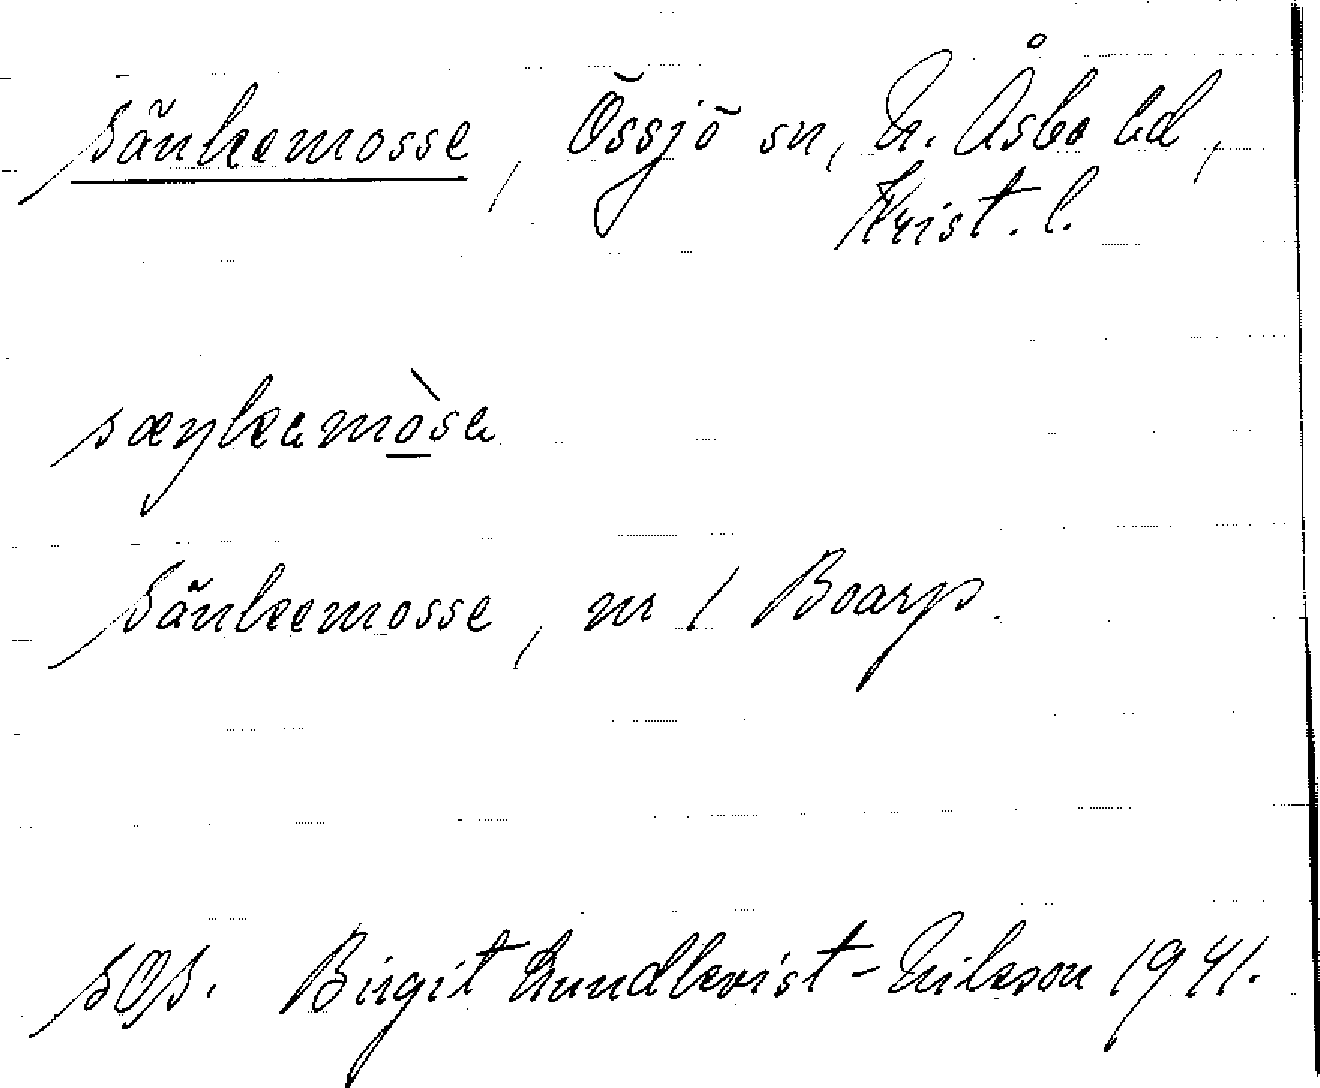 Sänkemosse, Össjö sn, N. Åsbo hd,
Krist. l.
sæŋkəmòsə
Sänkemosse, nr 1 Boarp.
SOS. Birgit Lundkvist-Nilsson 1941.